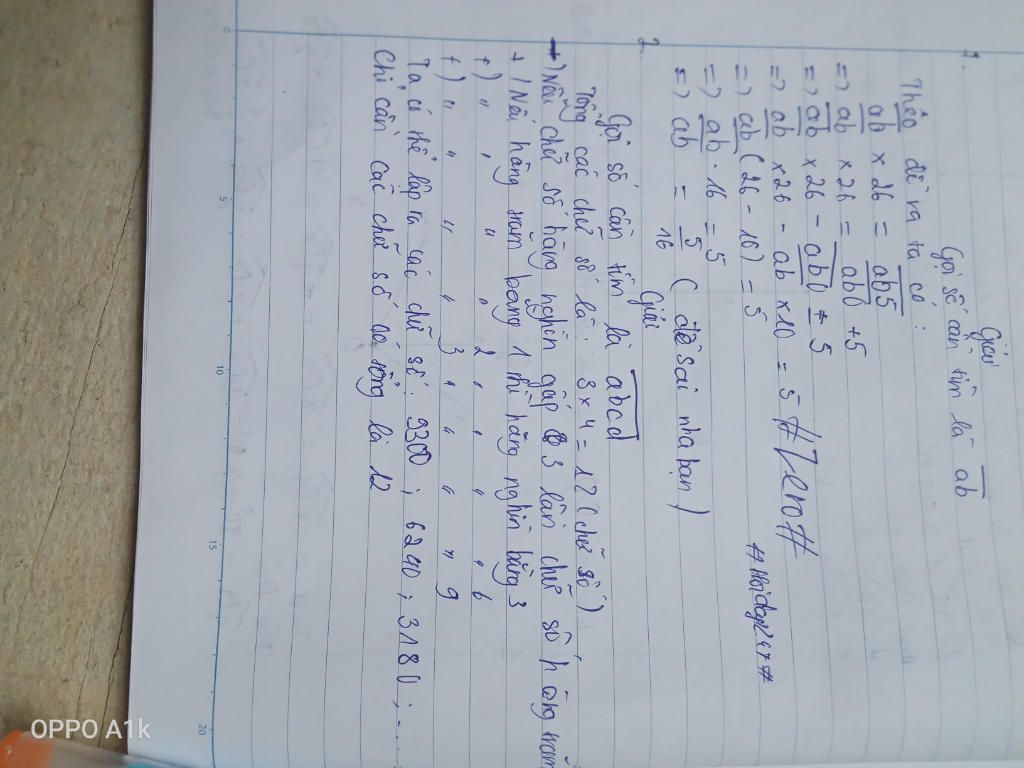 1.
Giải
Gọi số cần tìm là ab
Theo đề ra ta có :
ab x 26 = ab5
=> ab x 26 = ab0 + 5
=> ab x 26 - ab0 = 5
=> ab x 26 - ab x 10 = 5 #Zero#
=> ab ( 26 - 10) = 5
=> ab . 16 = 5
=> ab = 5/16 ( đề sai nha bạn )
2.
Giải
Gọi số cần tìm là abcd
Tổng các chữ số là : 3 x 4 = 12 ( chữ số )
+) Nếu chữ số hàng nghìn gấp 3 lần chữ số hàng trăm
+) Nếu hàng trăm bằng 1 thì hàng nghìn bằng 3
+) " " " " 2 " " " " 6
+) " " " " 3 " " " " 9
Ta có thể lập ra các chữ số : 9300 ; 6240 ; 3180 ; ...
Chỉ cần các chữ số có tổng là 12
OPPO A1k